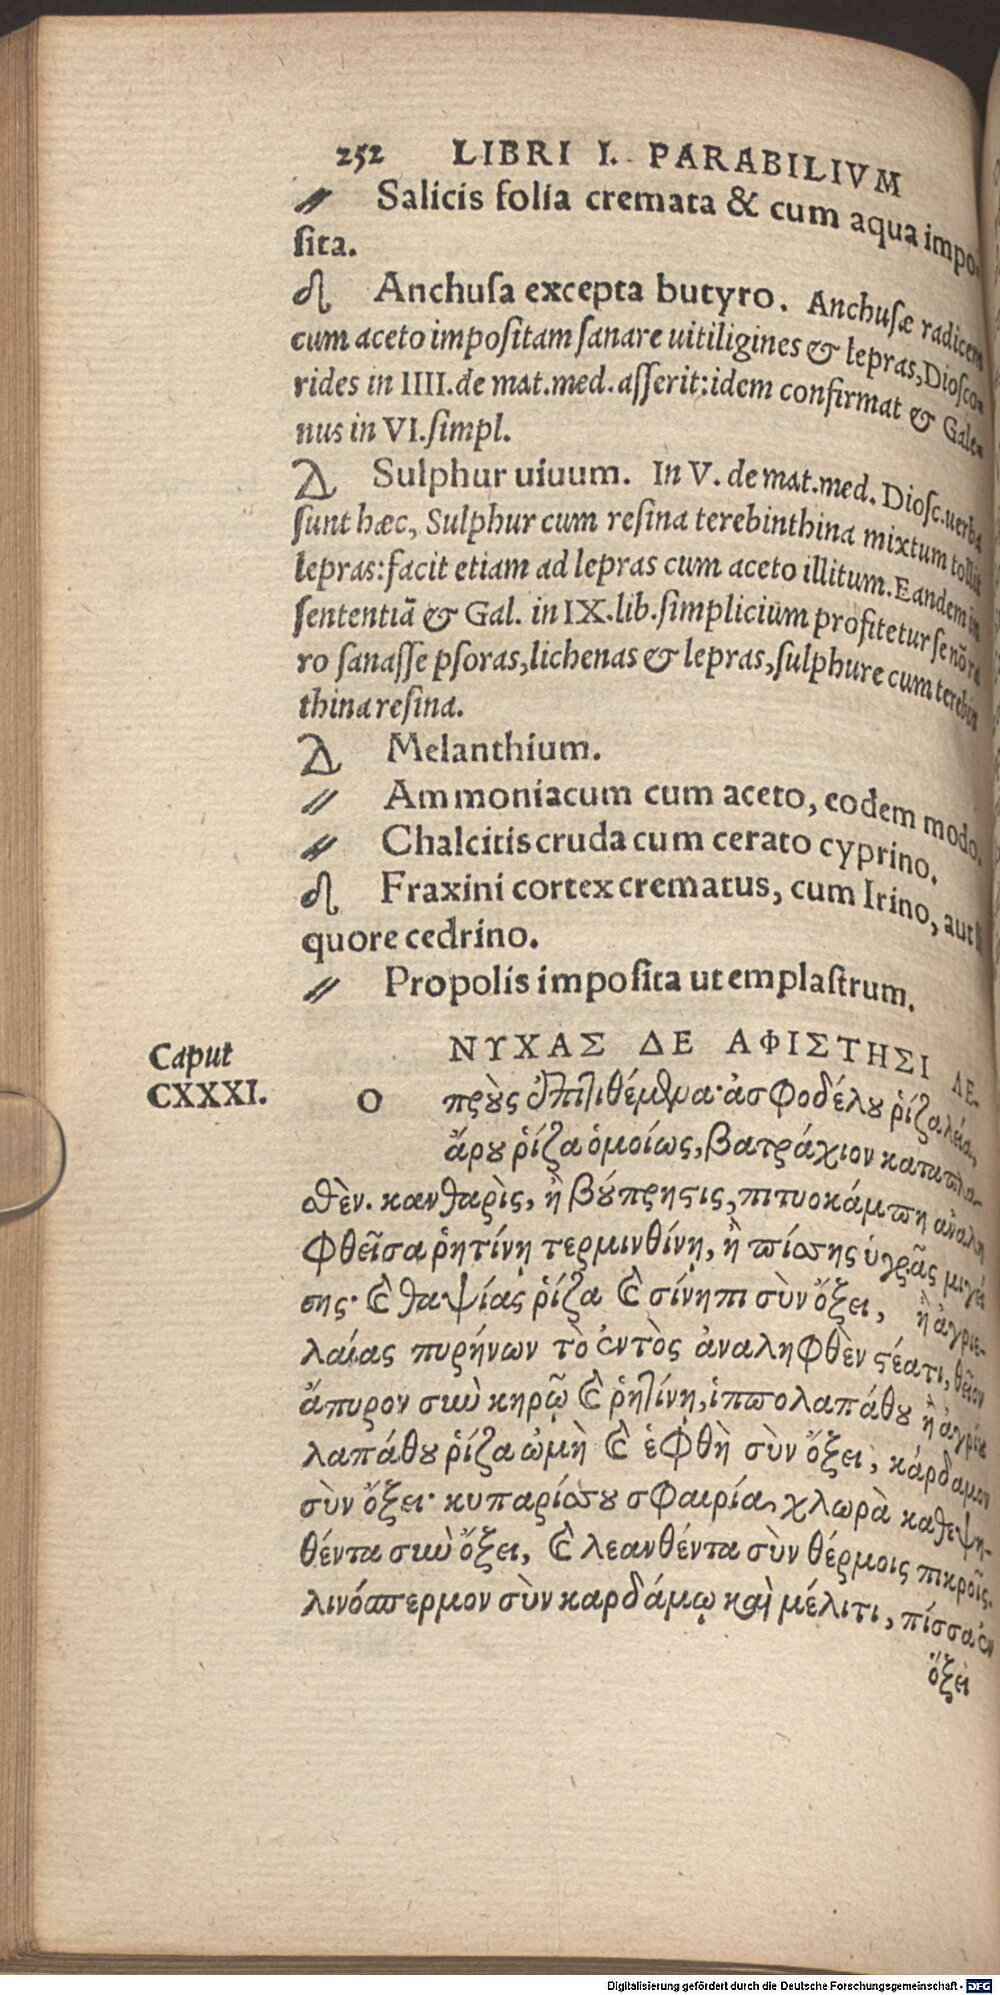 252 LIBRI I. PARABILIVM
Salicis folia cremata & cum aqua impo-
sita.
Anchusa excepta butyro. Anchusæ radicem
cum aceto impositam sanare uitiligines & lepras, Diosco-
rides in IIII. de mat. med. asserit: idem confirmat & Gale-
nus in VI. simpl.
Sulphur uiuum. In V. de mat. med. Diosc. uerba
sunt hæc, Sulphur cum resina terebinthina mixtum tollit
lepras: facit etiam ad lepras cum aceto illitum. Eandem in
sententiā & Gal. in IX. lib. simplicium profitetur se nō ra
ro sanasse psoras, lichenas & lepras, sulphure cum terebin
thina resina.
Melanthium.
Ammoniacum cum aceto, eodem modo.
Chalcitis cruda cum cerato cyprino.
Fraxini cortex crematus, cum Irino, aut li
quore cedrino.
Propolis imposita ut emplastrum.
Caput
CXXXI.
ΝΥΧΑΣ ΔΕ ΑΦΙΣΤΗΣΙ ΛΕ-
Ο πρους ἐπιτιθέμενα· ἀσφοδέλου ῥίζα λεία,
ἄρου ῥίζα ὁμοίως, βατράχιον καταπλα-
σθὲν. κανθαρὶς, ἢ βούπρησις, πιτυοκάμπη ἀναλη
φθεῖσα ῥητίνῃ τερμινθίνῃ, ἢ πίσσης ὑγρᾶς μιγεί
σης· καὶ θαψίας ῥίζα καὶ σίνηπι σὺν ὄξει, ἢ ἀγριε-
λαίας πυρήνων τὸ ἐντὸς ἀναληφθὲν στέατι, θεῖον
ἄπυρον σὺν κηρῷ καὶ ῥητίνῃ, ἱππολαπάθου ἢ ἀγρίου
λαπάθου ῥίζα ὠμὴ καὶ ἑφθὴ σὺν ὄξει, κάρδαμον
σὺν ὄξει· κυπαρίσσου σφαιρία χλωρὰ καθεψη-
θέντα σὺν ὄξει, καὶ λεανθέντα σὺν θέρμοις πικροῖς.
λινόσπερμον σὺν καρδάμῳ καὶ μέλιτι, πίσσα ἐν
ὄξει
Digitalisierung gefördert durch die Deutsche Forschungsgemeinschaft - DFG